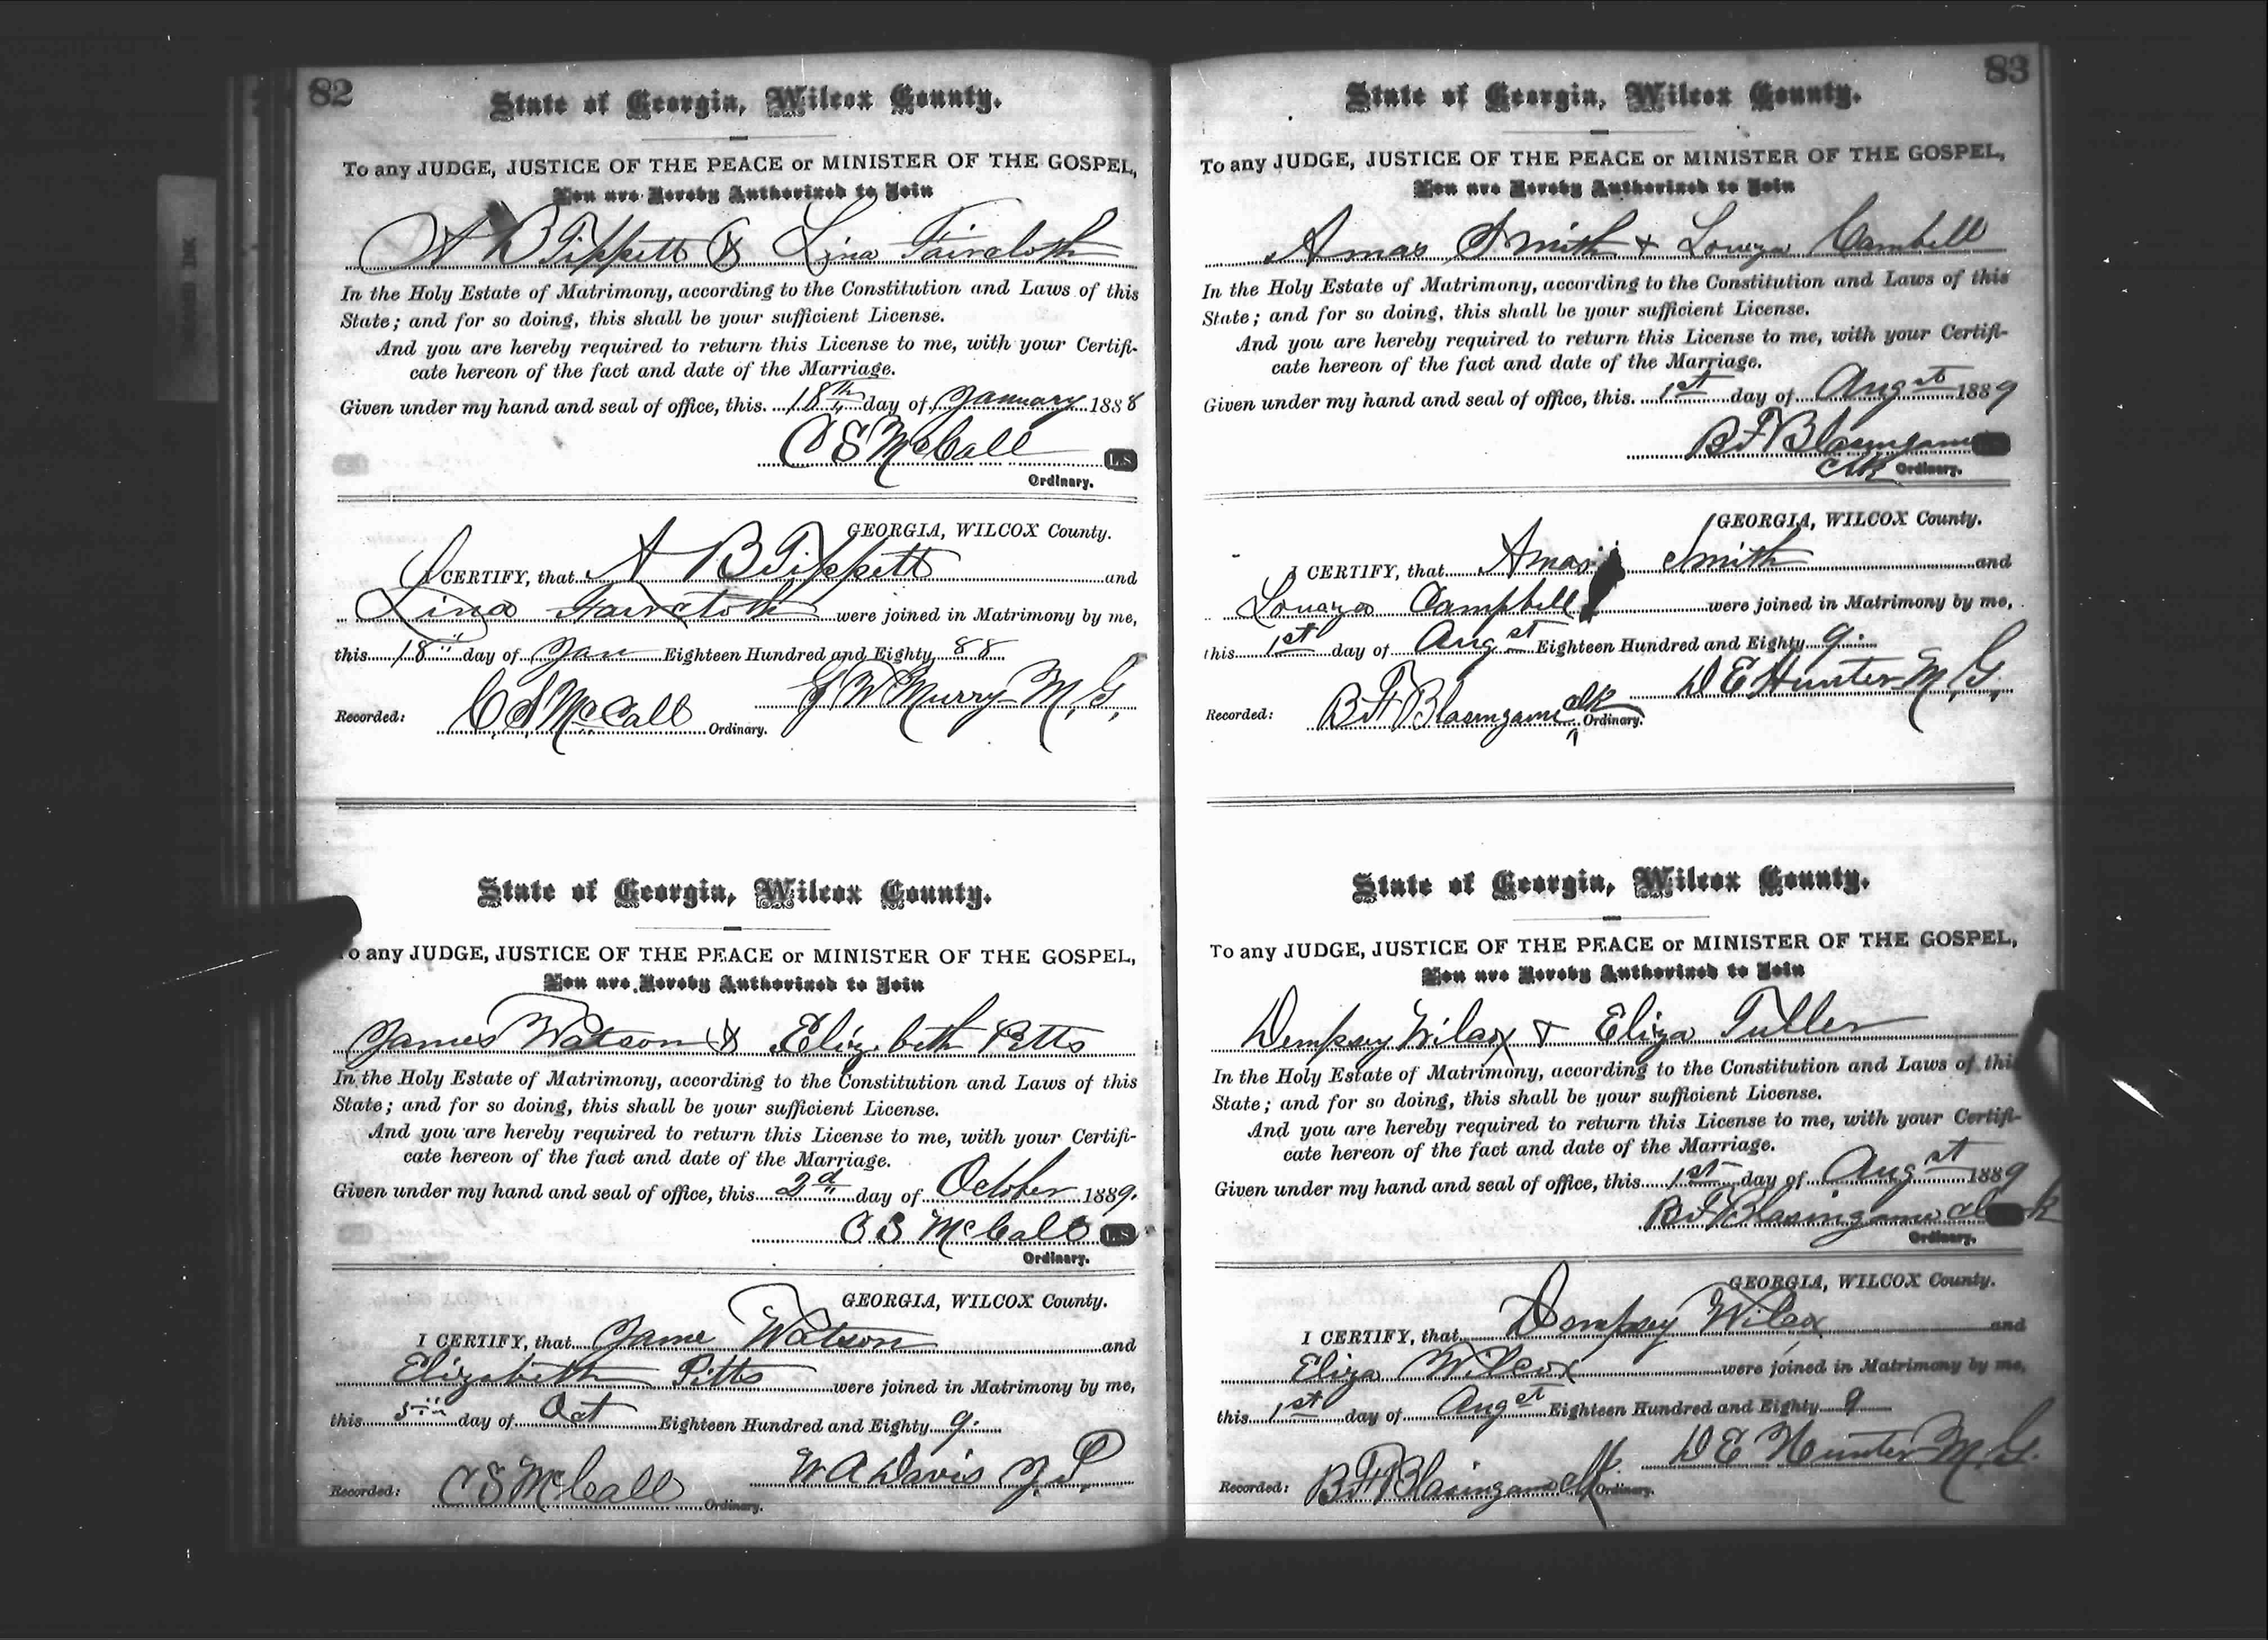 82
State of Georgia, Wilcox County.
To any JUDGE, JUSTICE OF THE PEACE or MINISTER OF THE GOSPEL,
You are Hereby Authorized to Join
A B Tippett & Lina Faircloth
In the Holy Estate of Matrimony, according to the Constitution and Laws of this
State; and for so doing, this shall be your sufficient License.
And you are hereby required to return this License to me, with your Certifi-
cate hereon of the fact and date of the Marriage.
Given under my hand and seal of office, this 18th day of January 1888
C S McCall L.S
Ordinary.
GEORGIA, WILCOX County.
I CERTIFY, that A B Tippett and
Lina Faircloth were joined in Matrimony by me,
this 18" day of Jan Eighteen Hundred and Eighty 88
W Murry M, G,
Recorded: C S McCall Ordinary.
State of Georgia, Wilcox County.
To any JUDGE, JUSTICE OF THE PEACE or MINISTER OF THE GOSPEL,
You are Hereby Authorized to Join
James Watson & Elizabeth Pitts
In the Holy Estate of Matrimony, according to the Constitution and Laws of this
State; and for so doing, this shall be your sufficient License.
And you are hereby required to return this License to me, with your Certifi-
cate hereon of the fact and date of the Marriage.
Given under my hand and seal of office, this 2d day of October 1889.
C S McCall L.S
Ordinary.
GEORGIA, WILCOX County.
I CERTIFY, that Jame Watson and
Elizabeth Pitts were joined in Matrimony by me,
this 5" day of Oct Eighteen Hundred and Eighty 9.
W A Davis J. P.
Recorded: C S McCall Ordinary.
83
State of Georgia, Wilcox County.
To any JUDGE, JUSTICE OF THE PEACE or MINISTER OF THE GOSPEL,
You are Hereby Authorized to Join
Amas Smith & Loueza Cambell
In the Holy Estate of Matrimony, according to the Constitution and Laws of this
State; and for so doing, this shall be your sufficient License.
And you are hereby required to return this License to me, with your Certifi-
cate hereon of the fact and date of the Marriage.
Given under my hand and seal of office, this 1st day of Augst 1889
B F Blasingame
clk Ordinary.
GEORGIA, WILCOX County.
I CERTIFY, that Amas Smith and
Louaza Campbell were joined in Matrimony by me,
this 1st day of Augst Eighteen Hundred and Eighty 9.
D E Hunter M, G,
Recorded: B F Blasingame clk Ordinary.
State of Georgia, Wilcox County.
To any JUDGE, JUSTICE OF THE PEACE or MINISTER OF THE GOSPEL,
You are Hereby Authorized to Join
Dempsey Wilcox & Eliza Fuller
In the Holy Estate of Matrimony, according to the Constitution and Laws of this
State; and for so doing, this shall be your sufficient License.
And you are hereby required to return this License to me, with your Certifi-
cate hereon of the fact and date of the Marriage.
Given under my hand and seal of office, this 1st day of Augst 1889
B F Blasingame clk
Ordinary.
GEORGIA, WILCOX County.
I CERTIFY, that Dempsey Wilcox and
Eliza Wilcox were joined in Matrimony by me,
this 1st day of Augst Eighteen Hundred and Eighty 9
D E Hunter M. G.
Recorded: B F Blasingame clk Ordinary.